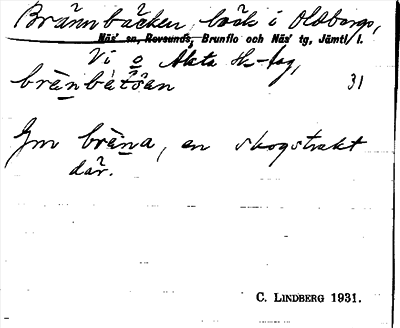 Brännbäcken, bäck i Oldbergo,
Näs' sn, Revsunds, Brunflo och Näs' tg, Jämtl l.
Vi o Alsta Hs-fag,
bränbätšan 31
Gm bräna, en skogstrakt
där.
C. LINDBERG 1931.